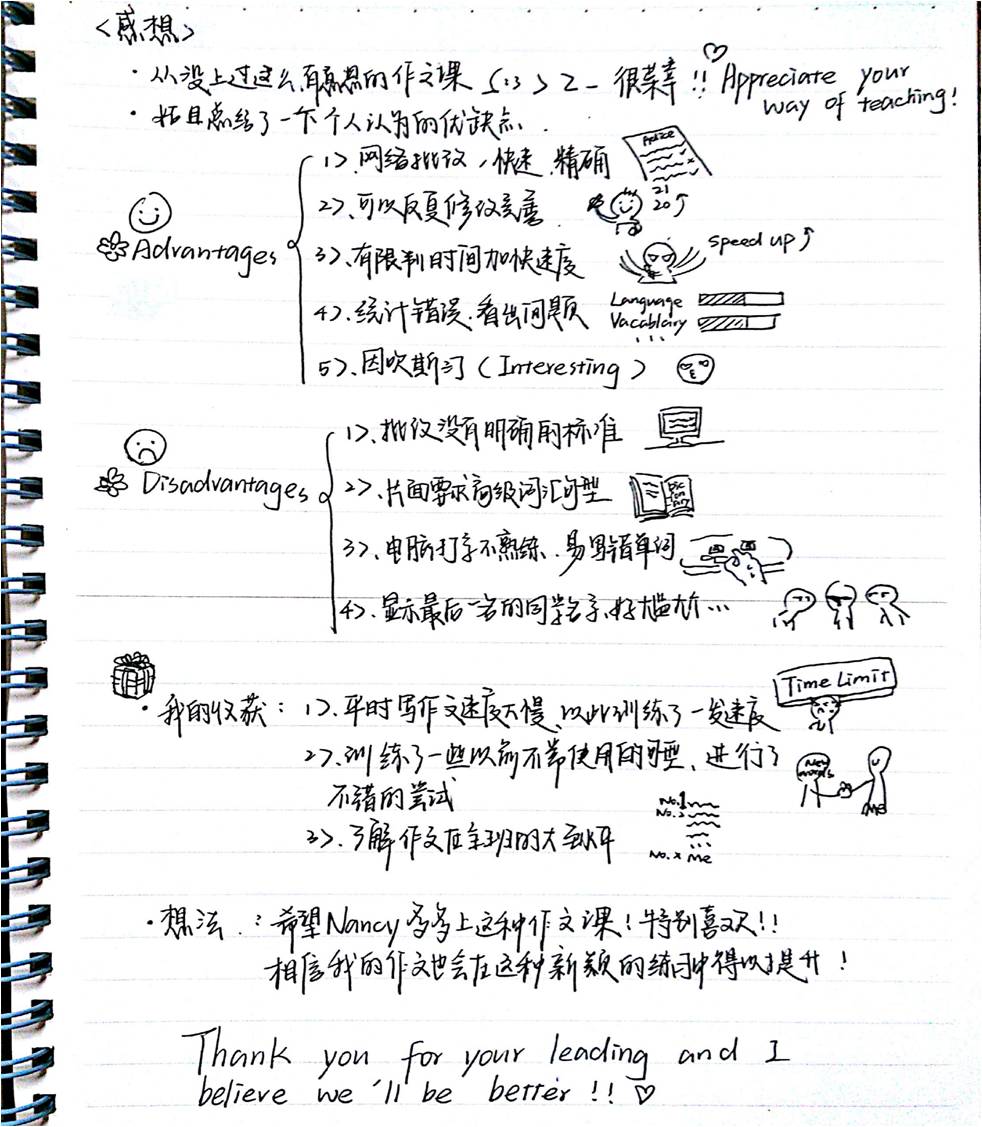 <感想>
· 从没上过这么有意思的作文课 ς(:3 > Z_ 很荣幸!! Appreciate your
way of teaching!
· 姑且总结了一下个人认为的优缺点.
Advantages
1>、网络批改,快速、精确
Advice
2>、可以反复修改完善
21
20↑
3>、有限制时间加快速度
speed up↑
4>、统计错误、看出问题
Language
Vacablary
...
5>、因吹斯汀(Interesting)
Disadvantages
1>、批改没有明确的标准
2>、片面要求高级词汇句型
Dic
tion
ary
3>、电脑打字不熟练、易写错单词
4>、显示最后一名的同学名字,好尴尬…
·我的收获: 1>、平时写作文速度太慢、以此训练了一发速度
Time Limit
2>、训练了一些以前不常使用的句型、进行了
不错的尝试
New
words
ME
3>、了解作文在全班的大致水平
No.1
No.2
...
No.x Me
·想法:希望Nancy多多上这种作文课!特别喜欢!!
相信我的作文也会在这种新颖的练习中得以提升!
Thank you for your leading and I
believe we'll be better!!